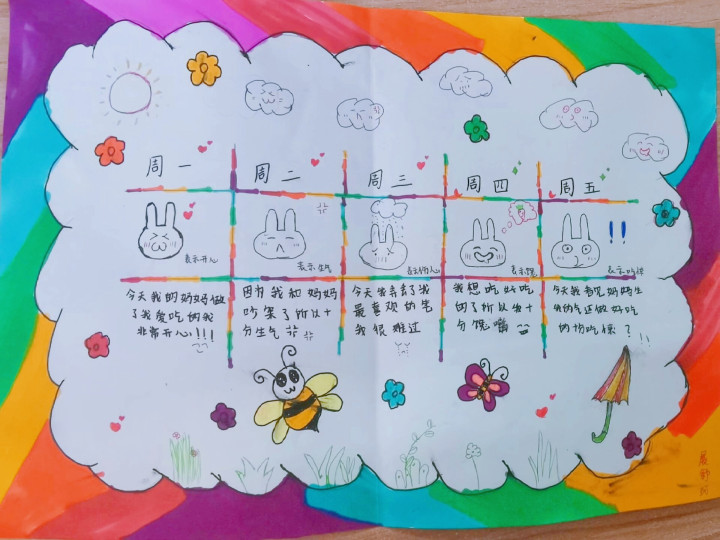 周一
周二
周三
周四
周五
表示开心
表示生气
表示伤心
表示馋
表示吃惊
今天我的妈妈做
了我爱吃的我
非常开心!!!
因为我和妈妈
吵架了所以十
分生气
今天我弄丢了我
最喜欢的笔
我很难过
我想吃好吃
的了所以十
分馋嘴
今天我看见妈妈生
气还做好吃
的
吃惊?
!!